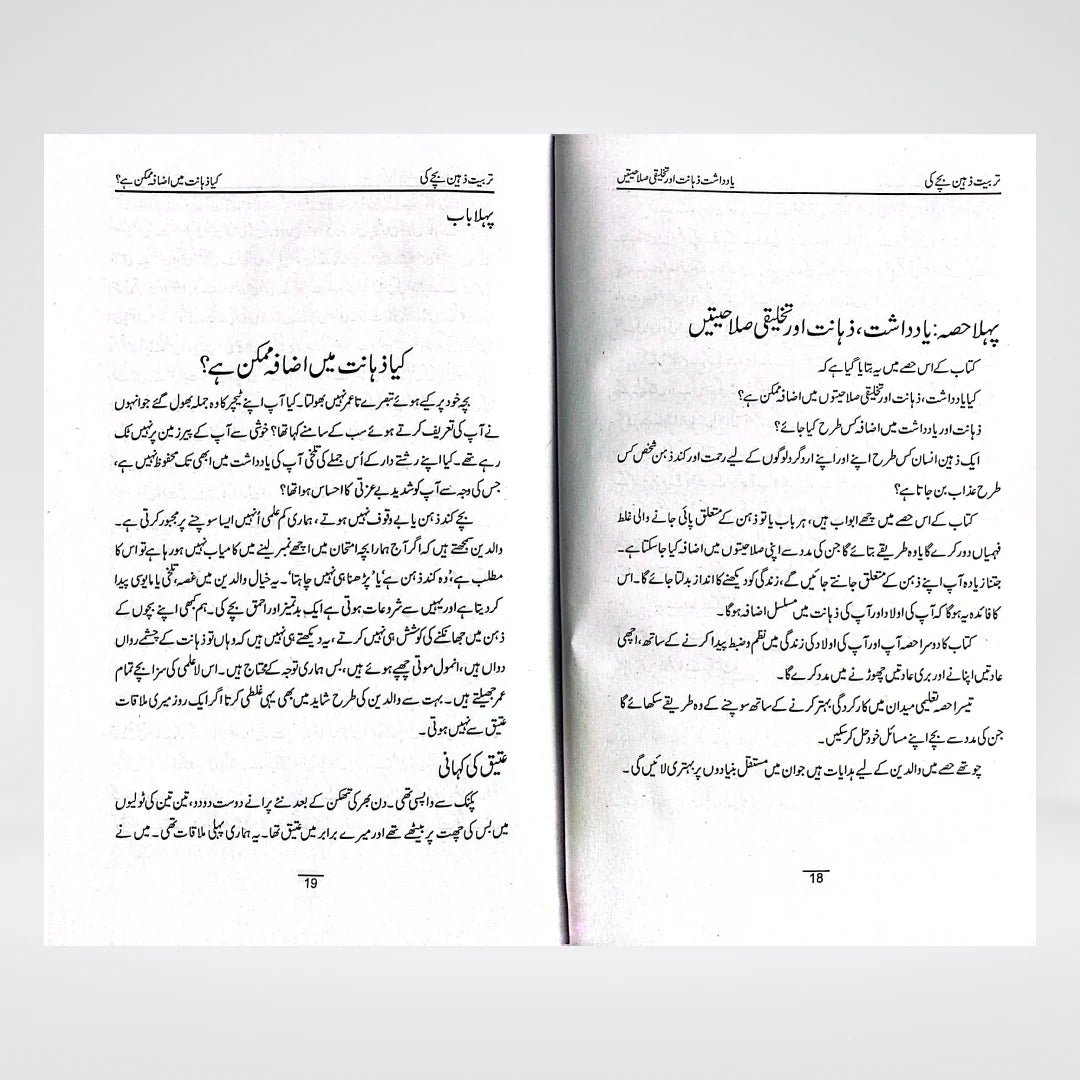 تربیت ذہین بچے کی یادداشت ذہانت اور تخلیقی صلاحیتیں
پہلا حصہ: یادداشت، ذہانت اور تخلیقی صلاحیتیں
کتاب کے اس حصے میں یہ بتایا گیا ہے کہ
کیا یادداشت، ذہانت اور تخلیقی صلاحیتوں میں اضافہ ممکن ہے؟
ذہانت اور یادداشت میں اضافہ کس طرح کیا جائے؟
ایک ذہین انسان کس طرح اپنے اور اپنے اردگرد لوگوں کے لیے رحمت اور کند ذہن شخص کس
طرح عذاب بن جاتا ہے؟
کتاب کے اس حصے میں چھے ابواب ہیں، ہر باب یا تو ذہن کے متعلق پائی جانے والی غلط
فہمیاں دور کرے گا یا وہ طریقے بتائے گا جن کی مدد سے اپنی صلاحیتوں میں اضافہ کیا جاسکتا ہے۔
جتنا زیادہ آپ اپنے ذہن کے متعلق جانتے جائیں گے، زندگی کو دیکھنے کا انداز بدلتا جائے گا۔ اس
کا فائدہ یہ ہوگا کہ آپ کی اولاد اور آپ کی ذہانت میں مسلسل اضافہ ہوگا۔
کتاب کا دوسرا حصہ آپ اور آپ کی اولاد کی زندگی میں نظم و ضبط پیدا کرنے کے ساتھ، اچھی
عادتیں اپنانے اور بری عادتیں چھوڑنے میں مدد کرے گا۔
تیسرا حصہ تعلیمی میدان میں کارکردگی بہتر کرنے کے ساتھ سوچنے کے وہ طریقے سکھائے گا
جن کی مدد سے بچے اپنے مسائل خود حل کر سکیں۔
چوتھے حصے میں والدین کے لیے ہدایات ہیں جو ان میں مستقل بنیادوں پر بہتری لائیں گی۔
18
تربیت ذہین بچے کی کیا ذہانت میں اضافہ ممکن ہے؟
پہلا باب
کیا ذہانت میں اضافہ ممکن ہے؟
بچہ خود پر کیے ہوئے تبصرے تا عمر نہیں بھولتا۔ کیا آپ اپنے ٹیچر کا وہ جملہ بھول گئے جو انہوں
نے آپ کی تعریف کرتے ہوئے سب کے سامنے کہا تھا؟ خوشی سے آپ کے پیر زمین پر نہیں ٹک
رہے تھے۔ کیا اپنے رشتے دار کے اُس جملے کی تلخی آپ کی یادداشت میں ابھی تک محفوظ نہیں ہے،
جس کی وجہ سے آپ کو شدید بے عزتی کا احساس ہوا تھا؟
بچے کند ذہن یا بے وقوف نہیں ہوتے، ہماری کم علمی اُنہیں ایسا سوچنے پر مجبور کرتی ہے۔
والدین سمجھتے ہیں کہ اگر آج ہمارا بچہ امتحان میں اچھے نمبر لینے میں کامیاب نہیں ہورہا ہے تو اس کا
مطلب ہے؛ 'وہ کند ذہن ہے' یا 'پڑھنا ہی نہیں چاہتا'۔ یہ خیال والدین میں غصہ، تلخی یا مایوسی پیدا
کردیتا ہے اور یہیں سے شروعات ہوتی ہے ایک بدتمیز اور احمق بچے کی۔ ہم کبھی اپنے بچوں کے
ذہن میں جھانکنے کی کوشش ہی نہیں کرتے، یہ دیکھتے ہی نہیں ہیں کہ وہاں تو ذہانت کے چشمے رواں
دواں ہیں، انمول موتی چھپے ہوئے ہیں، بس ہماری توجہ کے محتاج ہیں۔ اس لاعلمی کی سزا بچے تمام
عمر جھیلتے ہیں۔ بہت سے والدین کی طرح شاید میں بھی یہی غلطی کرتا اگر ایک روز میری ملاقات
عتیق سے نہیں ہوتی۔
عتیق کی کہانی
پکنک سے واپسی تھی۔ دن بھر کی تھکن کے بعد نئے پرانے دوست دو دو، تین تین کی ٹولیوں
میں بس کی چھت پر بیٹھے تھے اور میرے برابر میں عتیق تھا۔ یہ ہماری پہلی ملاقات تھی۔ میں نے
19